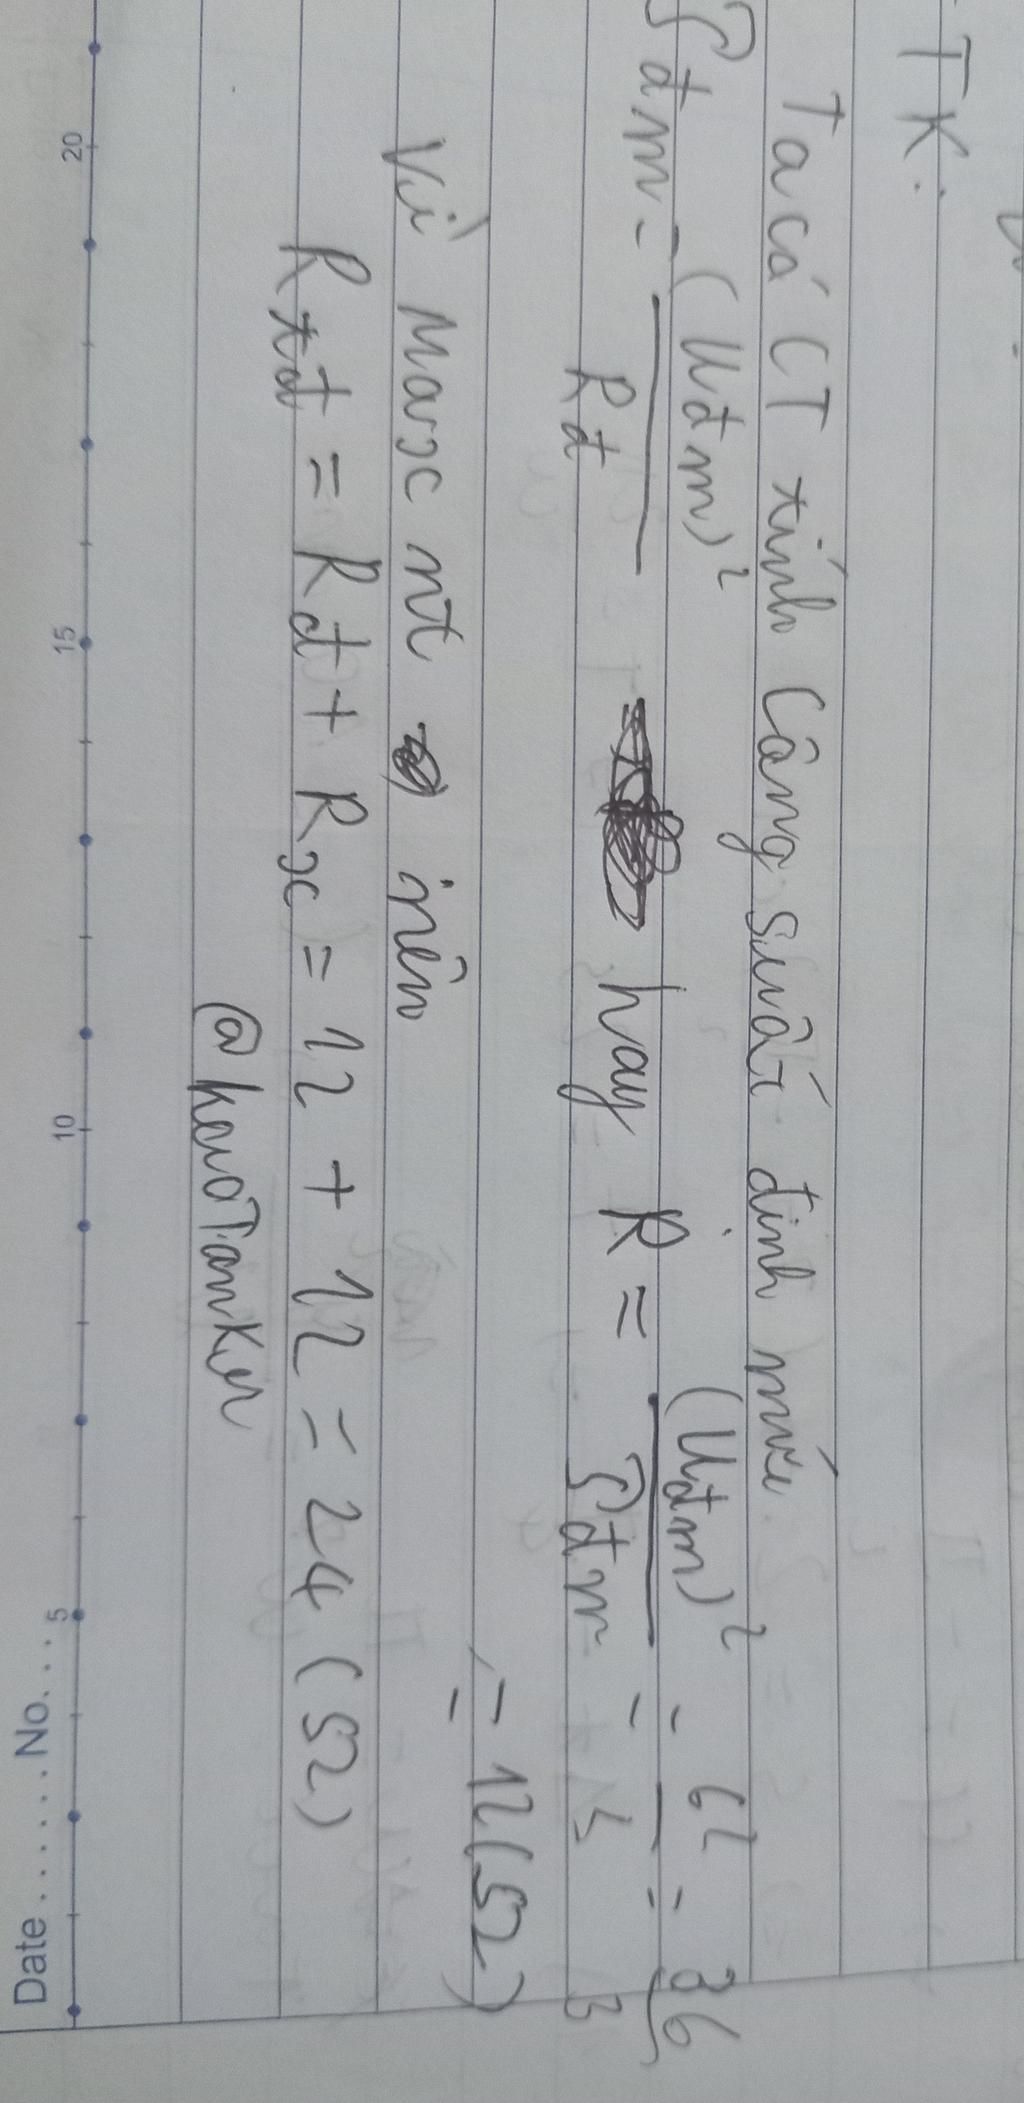 TK:
Ta có CT tính Công suất định mức
Pđm = (Uđm)² / Rđ hay R = (Uđm)² / Pđm = 6² / 3 = 36 / 3
= 12 (Ω)
Vì Marx nt nên
Rtđ = Rđ + Rx = 12 + 12 = 24 (Ω)
20 15 10 5
Date ....... No. ...